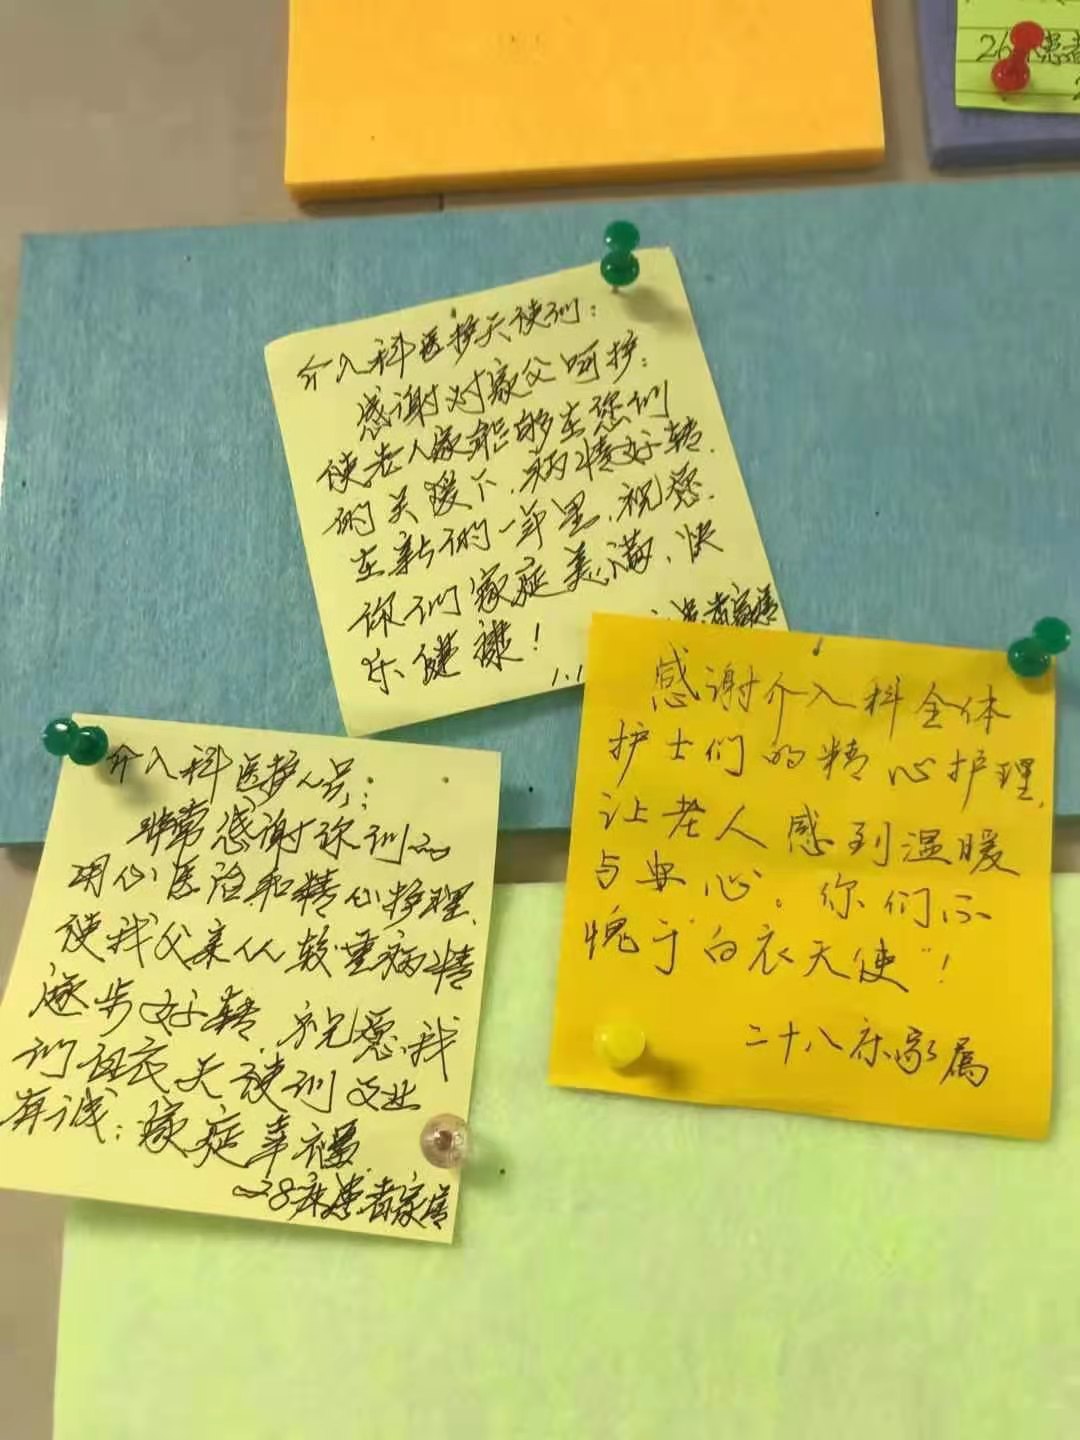 26床患者
介入科医护天使们：
感谢对家父呵护：
使老人家能够在您们
的关爱下，病情好转，
在新的一年里，祝愿
你们家庭美满、快
乐健康！
患者家属
1.1
感谢介入科全体
护士们的精心护理，
让老人感到温暖
与安心。你们不
愧于“白衣天使”！
二十八床家属
介入科医护人员：
非常感谢你们的
用心医治和精心护理，
使我父亲从较重病情
逐步好转 祝愿我
们白衣天使们文业
有诚：家庭幸福
28床患者家属